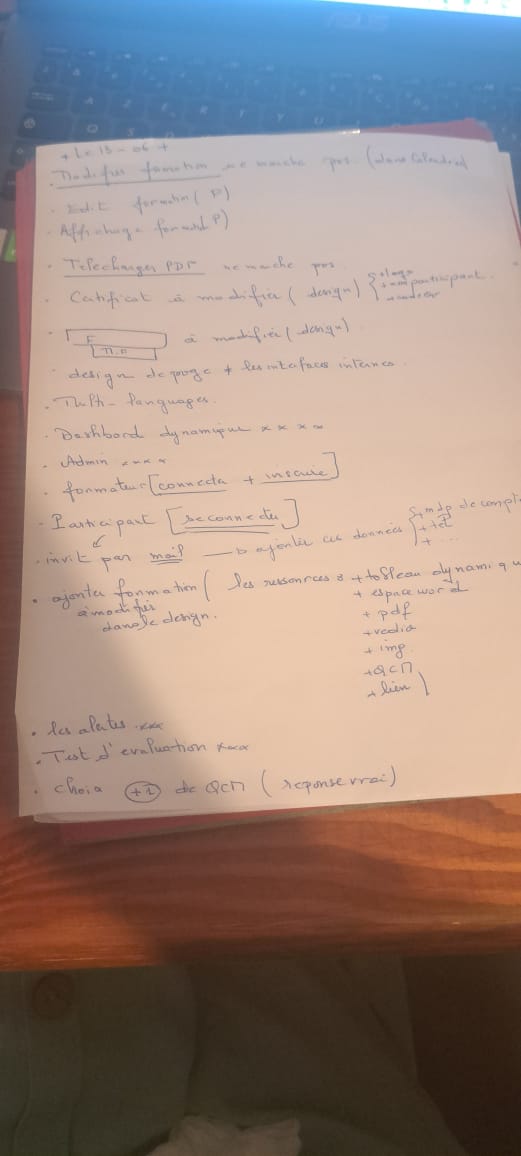 + Le 13 - 06 +
Modifier formation ne marche pas. (dans Calendrier)
. Edit formation ( P)
. Affichage format P)
. Telecharger PDF ne marche pas
. Catificat à modifier ( design ) { + logo
+ nom participant.
F à modifier ( design )
. design de page + les interfaces internes.
. Multi - languages.
. Dashbord dynamique x x x x
. Admin x x x x
. formateur [ connecta + inscrire ]
. Participant [ se connecter ]
. invit par mail → ajouter ces données { + mdp de compte
+ tel
+ ...
. ajouter formation ( les ressources : + tableau dynamique
à modifier + espace word
dans le design. + pdf
+ vedio
+ img
+ QCM
+ lien )
. les alertes xxx
. Test d'evaluation xxxx
. Choia +1 de QCM ( reponse vrai )